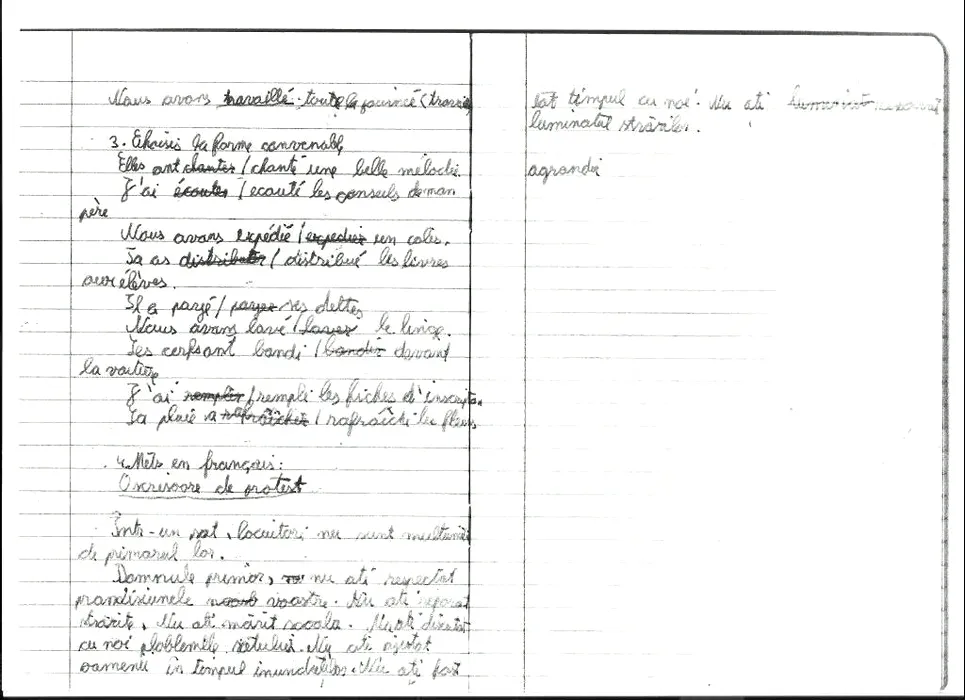 Nous avons travaillé toute la journée (trava
3. Choisis la forme convenable
Elles ont chanter / chanté une belle mélodie
J'ai écouter / ecouté les conseils de mon
père
Nous avons expédié / expedier un colis.
Tu as distribuer / distribué les livres
aux élèves.
Il a payé / payer ses dettes
Nous avons lavé / laver le linge.
Les cerfs ont bondi / bondir devant
la voiture
J'ai remplir / rempli les fiches d'inscription
La pluie a rafraîchir / rafraîchi les fleurs
4. Mets en français:
O scrisoare de protest
Într-un sat, locuitori nu sunt multumiti
de primarul lor.
Domnule primar, nu ati respectat
promisiunele voastre. Nu ati reparat
străzile, Nu ati mărit scoala. Nu ati discutat
cu noi ploblemele satului. Nu ati ajutat
oamenii în timpul inundatilor. Nu ati fost
tot timpul cu noi. Nu ati
luminatul străzilor.
agrandir